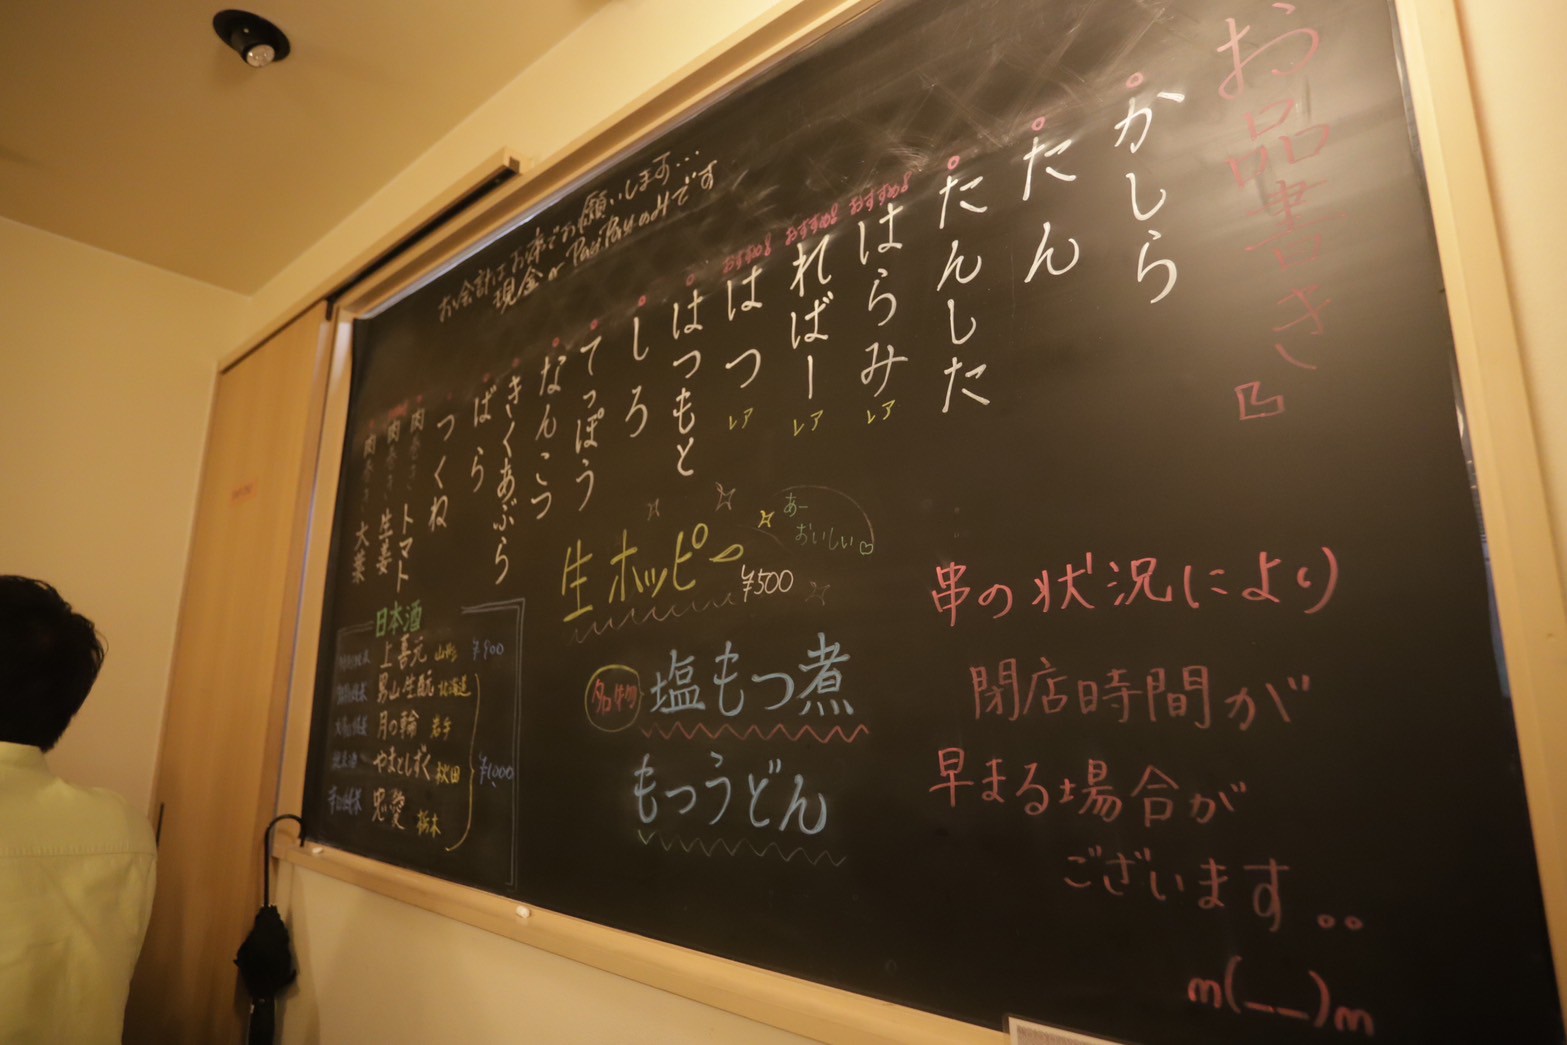 お品書き
凸
かしら
たん
たんした
おすすめ!
はらみ
レア
おすすめ!
ればー
レア
おすすめ!
はつ
レア
はつもと
しろ
てっぽう
なんこつ
きくあぶら
ばら
つくね
肉
トマト
肉
生姜
肉
大葉
お会計はお席でお願いします…
現金 or PayPayのみです
あー
おいしい♡
生ホッピー
¥500
名物
塩もつ煮
もつうどん
日本酒
上喜元 山形 ¥900
男山生酛 北海道
月の輪 岩手
やまとしずく 秋田
忠愛 栃木
¥1,000
串の状況により
閉店時間が
早まる場合が
ございます。。
m(__)m